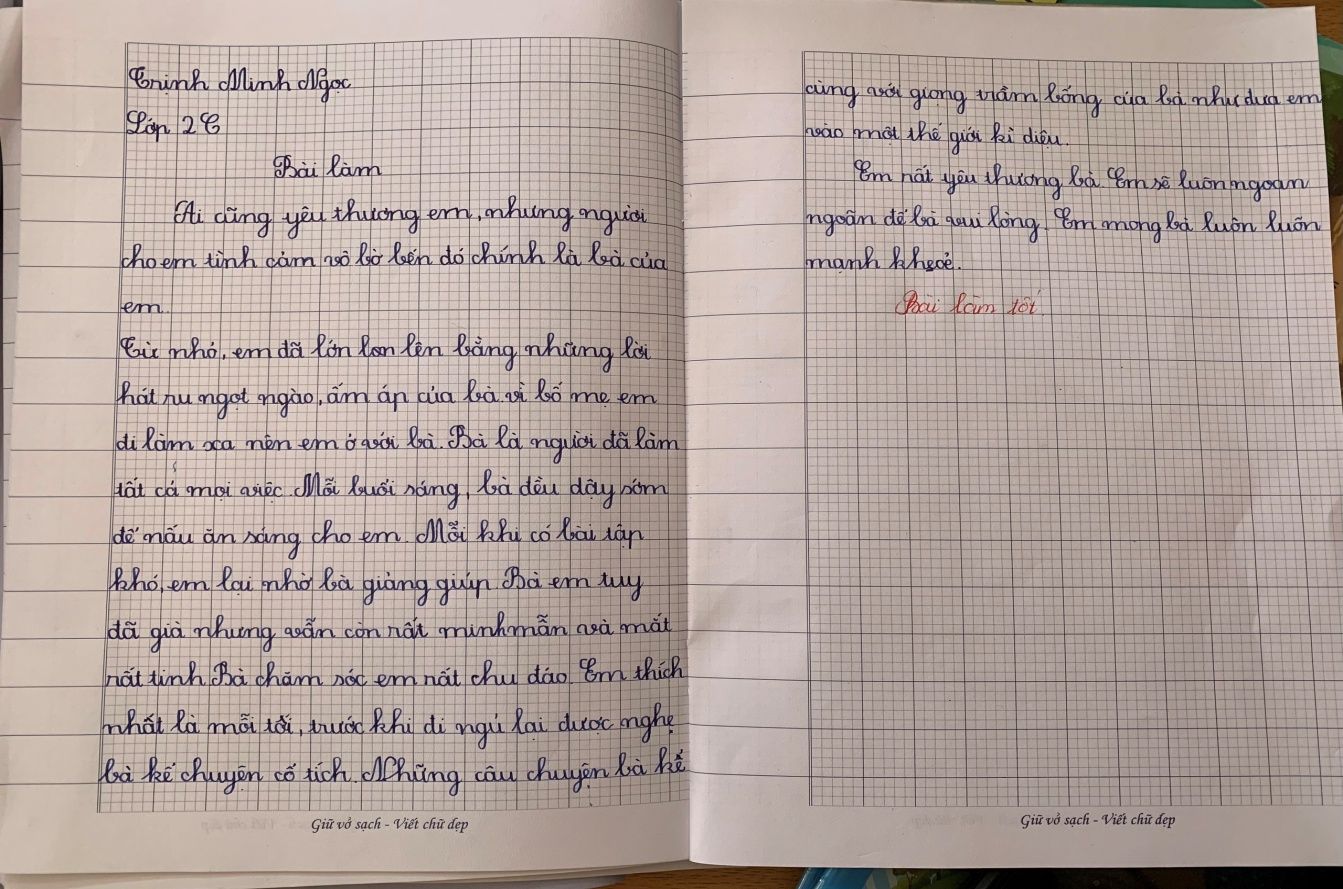 Trịnh Minh Ngọc
Lớp 2C
Bài làm
Ai cũng yêu thương em, nhưng người
cho em tình cảm vô bờ bến đó chính là bà của
em.
Từ nhỏ, em đã lớn lên bằng những lời
hát ru ngọt ngào, ấm áp của bà vì bố mẹ em
đi làm xa nên em ở với bà. Bà là người đã làm
tất cả mọi việc. Mỗi buổi sáng, bà đều dậy sớm
để nấu ăn sáng cho em. Mỗi khi có bài tập
khó, em lại nhờ bà giảng giúp. Bà em tuy
đã già nhưng vẫn còn rất minh mẫn và mắt
rất tinh. Bà chăm sóc em rất chu đáo. Em thích
nhất là mỗi tối, trước khi đi ngủ lại được nghe
bà kể chuyện cổ tích. Những câu chuyện bà kể
Giữ vở sạch - Viết chữ đẹp
cùng với giọng trầm bổng của bà như đưa em
vào một thế giới kì diệu.
Em rất yêu thương bà. Em sẽ luôn ngoan
ngoãn để bà vui lòng. Em mong bà luôn luôn
mạnh khoẻ.
Bài làm tốt
Giữ vở sạch - Viết chữ đẹp